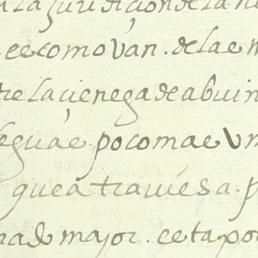 la juridiçion de la n
ee como van . de la e m
re la çienega de abuin
legua e . poco mae v m
que atraviesa . p
nad mayor . eeta po